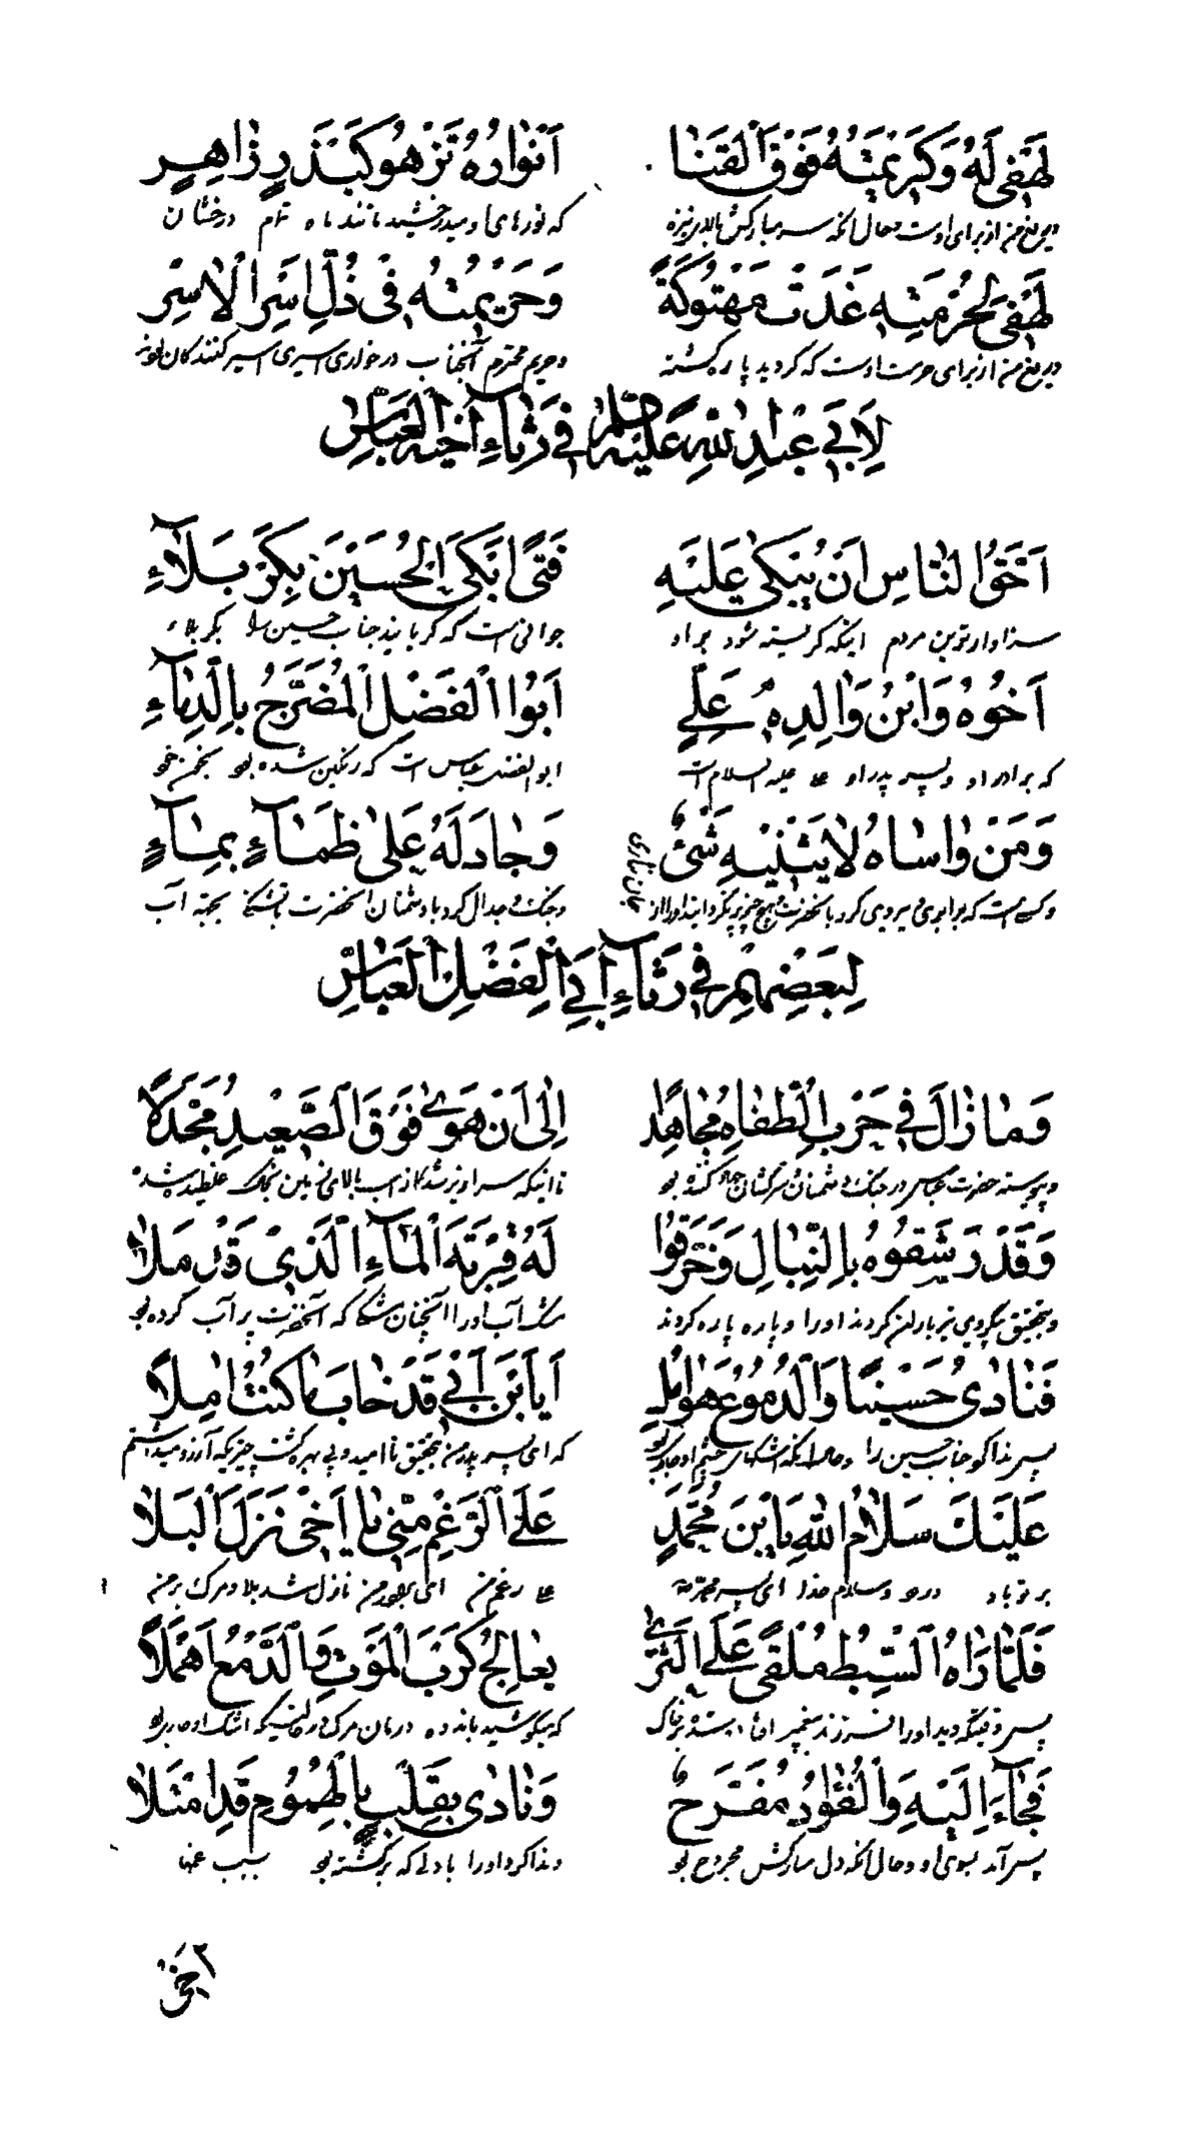 لَهْفِي لَهُ وَكَرِيمَتُهُ فَوْقَ الْقَنَا اَنْوَارُهُ تَزْهُو كَبَدْرٍ زَاهِرٍ
دریغ من از برای اوست و حال آنکه سر مبارکش بالای نیزه که نورهای او میدرخشید مانند ماه تمام درخشان
لَهْفِي لِحُرْمَتِهِ غَدَتْ مَهْتُوكَةً وَحَرِيمُهُ فِي ذُلِّ اَسْرِ الْاٰسِرِ
دریغ من از برای حرمت اوست که گردید پاره گشته و حریم محترم آنجناب در خواری اسیری اسیر کنندگان
لِاَبِي عَبْدِ اللهِ عَلَيْهِ السَّلَامُ فِي رِثَاءِ اَخِيهِ الْعَبَّاسِ
اَحَقُّ النَّاسِ اَنْ يُبْكىٰ عَلَيْهِ فَتًى اَبْكَى الْحُسَيْنَ بِكَرْبَلَاءِ
سزاوارترین مردم اینکه گریسته شود بر او جوانی است که گریانید جناب حسین را بکربلاء
اَخُوهُ وَابْنُ وَالِدِهِ عَلِيٍّ اَبُوا الْفَضْلِ الْمُضَرَّجُ بِالدِّمَاءِ
که برادر او و پسر پدر او علی علیه السلام است ابوالفضل عباس است که رنگین شده بود بخون خود
وَمَنْ وَاسَاهُ لَا يَثْنِيهِ شَئٌ وَجَادَلَهُ عَلىٰ ظَمَاءٍ بِمَاءٍ
و کسی است که برابری و پیروی کرد با آنحضرت و هیچ چیز برنگردانید او را از و جنگ و جدال کرد با دشمنان آنحضرت با تشنگی بجهة آب
لِبَعْضِهِمْ فِي رِثَاءِ اَبِي الْفَضْلِ الْعَبَّاسِ
وَمَا زَالَ فِي حَرْبِ الطُّغَاةِ مُجَاهِدًا اِلىٰ اَنْ هَوىٰ فَوْقَ الصَّعِيدِ مُجَدَّلًا
و پیوسته حضرت عباس در جنگ دشمنان و سرکشان جهاد کننده بود تا اینکه سرازیر شد از اسب بالای زمین بخاک غلطیده شده
وَقَدْ رَشَقُوهُ بِالنِّبَالِ وَخَرَّقُوا لَهُ قِرْبَةَ الْمَاءِ الَّذِي قَدْ مَلَا
و بتحقیق که تیرباران کردند او را و پاره پاره کردند مشک آب او را آنچنان مشکی که آنحضرت پر آب کرده بود
فَنَادىٰ حُسَيْنًا وَالدُّمُوعُ هَوَامِلٌ اَيَا بْنَ اَبِي قَدْ خَابَ مَا كُنْتُ اٰمِلًا
پس ندا کرد جناب حسین را و حال آنکه اشکهای چشم او جاری بود که ای پسر پدر من بتحقیق ناامید و بی بهره گشت چیزیکه آرزو میداشتم
عَلَيْكَ سَلَامُ اللهِ يَا بْنَ مُحَمَّدٍ عَلَى الرَّغْمِ مِنِّي يَا اَخِي نَزَلَ الْبَلَا
بر تو باد درود و سلام خدا ای پسر محمد علی رغم من ای برادر من نازل شد بلا و مرگ بر من
فَلَمَّا رَاٰهُ السِّبْطُ مُلْقًى عَلَى الثَّرىٰ يُعَالِجُ كَرْبَ الْمَوْتِ وَالدَّمْعُ اَهْمَلَا
پس وقتیکه دید او را فرزند پیغمبر افتاده شده بر خاک که میکوشید باندوه درمان مرگ در حالتیکه اشک او جاری بود
فَجَاءَ اِلَيْهِ وَالْفُؤَادُ مُقَرَّحٌ وَنَادىٰ بِقَلْبٍ بِالْهُمُومِ قَدِ امْتَلَا
پس آمد بسوی او و حال آنکه دل مبارکش مجروح بود و ندا کرد او را با دلی که پر گشته بود بسبب غمها
اَخِي